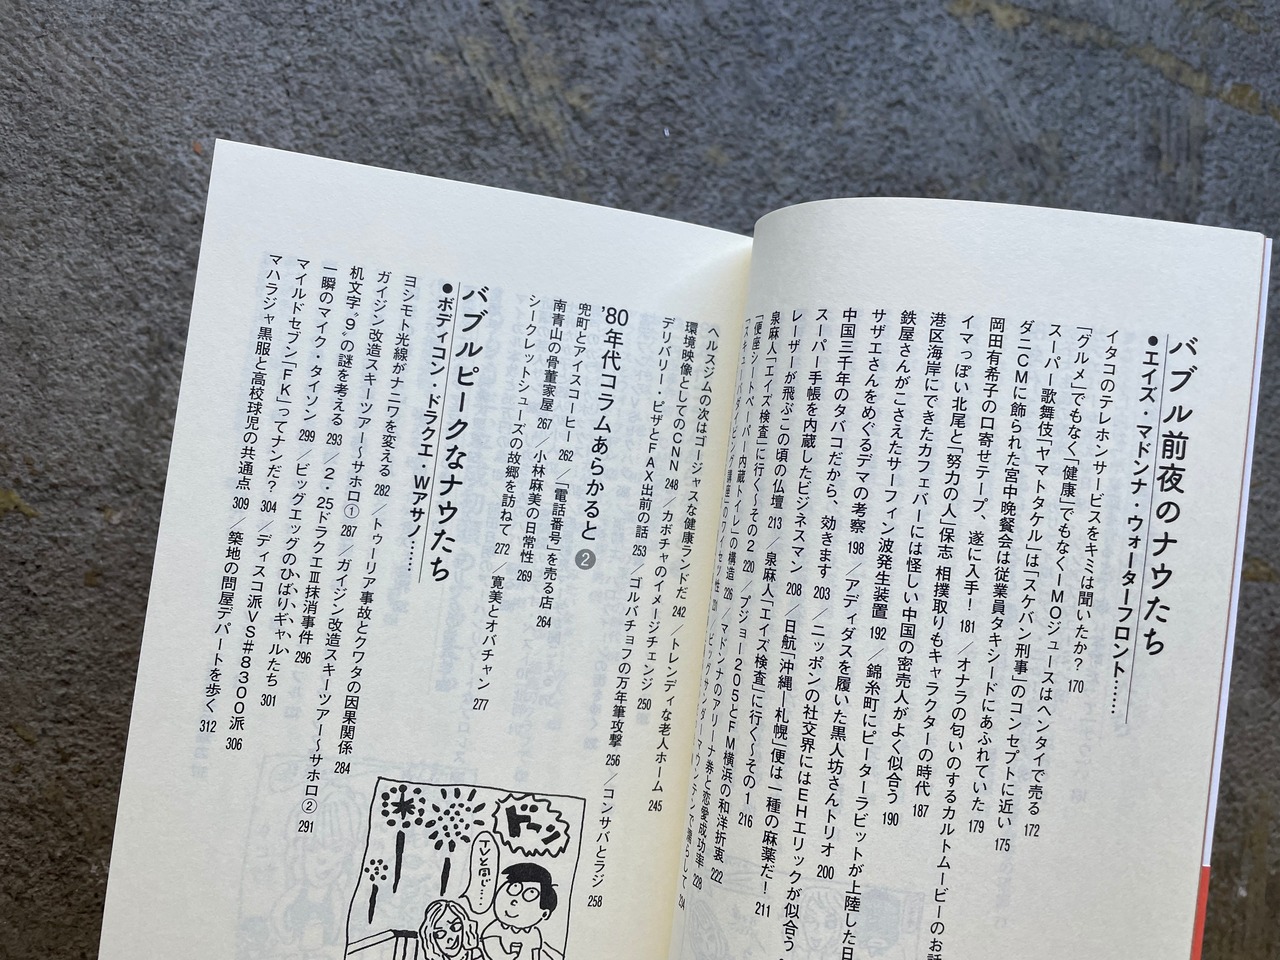 バブル前夜のナウたち
●エイズ・マドンナ・ウォーターフロント……
イタコのテレホンサービスをキミは聞いたか? 170
「グルメ」でもなく「健康」でもなく―MOジュースはヘンタイで売る 172
スーパー歌舞伎「ヤマトタケル」は「スケバン刑事」のコンセプトに近い 175
ダニCMに飾られた宮中晩餐会は従業員タキシードにあふれていた 179
岡田有希子の口寄せテープ、遂に入手! 181/オナラの匂いのするカルトムービーのお話
イマっぽい北尾と「努力の人」保志 相撲取りもキャラクターの時代 187
港区海岸にできたカフェバーには怪しい中国の密売人がよく似合う 190
鉄屋さんがこさえたサーフィン波発生装置 192/錦糸町にピーターラビットが上陸した日
サザエさんをめぐるデマの考察 198/アディダスを履いた黒人坊さんトリオ 200
中国三千年のタバコだから、効きます 203/ニッポンの社交界にはEHエリックが似合う
スーパー手帳を内蔵したビジネスマン 208/日航「沖縄―札幌」便は一種の麻薬だ! 211
レーザーが飛ぶこの頃の仏壇 213/泉麻人「エイズ検査」に行く〜その1 216
泉麻人「エイズ検査」に行く〜その2 220/プジョー205とFM横浜の和洋折衷 222
「便座シートペーパー内蔵トイレ」の構造 226/マドンナのアリーナ券と恋愛成功率 228
「スキューバダイビング講座」のワイセツ性 231/ビッグサンダーマウンテンで濡らして 234
ヘルスジムの次はゴージャスな健康ランドだ 242/トレンディな老人ホーム 245
環境映像としてのCNN 248/カボチャのイメージチェンジ 250
デリバリー・ピザとFAX出前の話 253/ゴルバチョフの万年筆攻撃 256/コンサバとラジ 258
'80年代コラムあらかると ❷
兜町とアイスコーヒー 262/「電話番号」を売る店 264
南青山の骨董家屋 267/小林麻美の日常性 269
シークレットシューズの故郷を訪ねて 272/寛美とオバチャン 277
バブルピークなナウたち
●ボディコン・ドラクエ・Wアサノ……
ヨシモト光線がナニワを変える 282/トゥーリア事故とクワタの因果関係 284
ガイジン改造スキーツアー〜サホロ① 287/ガイジン改造スキーツアー〜サホロ② 291
机文字〝9〟の謎を考える 293/2・25ドラクエⅢ抹消事件 296
一瞬のマイク・タイソン 299/ビッグエッグのひばりギャルたち 301
マイルドセブン「FK」ってナンだ? 304/ディスコ派VS#8300派 306
マハラジャ黒服と高校球児の共通点 309/築地の問屋デパートを歩く 312
ドーン
TVと同じ…